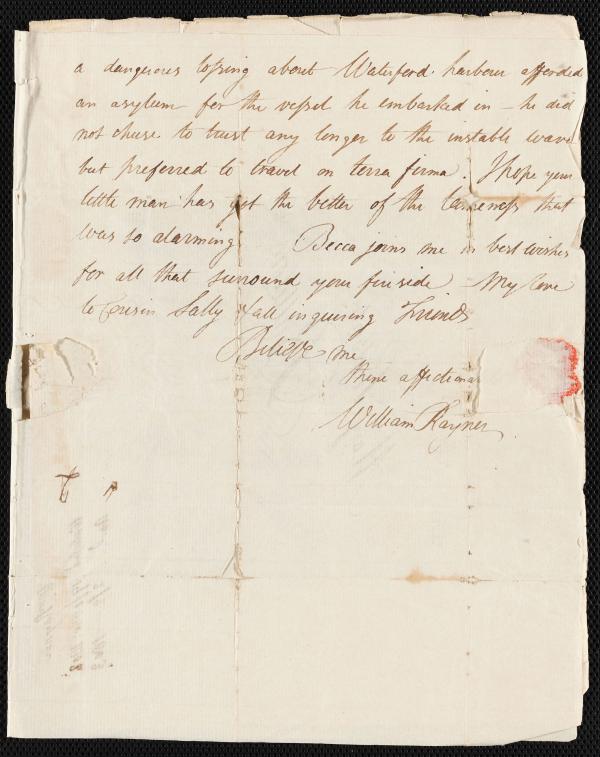 a dangerous tossing about Waterford harbour afforded
an asylum for the vessel he embarked in – he did
not chuse to trust any longer to the instable wave
but preferred to travel on terra firma. I hope your
little man has got the better of the lameness that
was so alarming Becca joins me in best wishes
for all that surround your fireside – My love
to Cousin Sally & all inquiring Friends
Believe me
thine affectionate
William Rayner